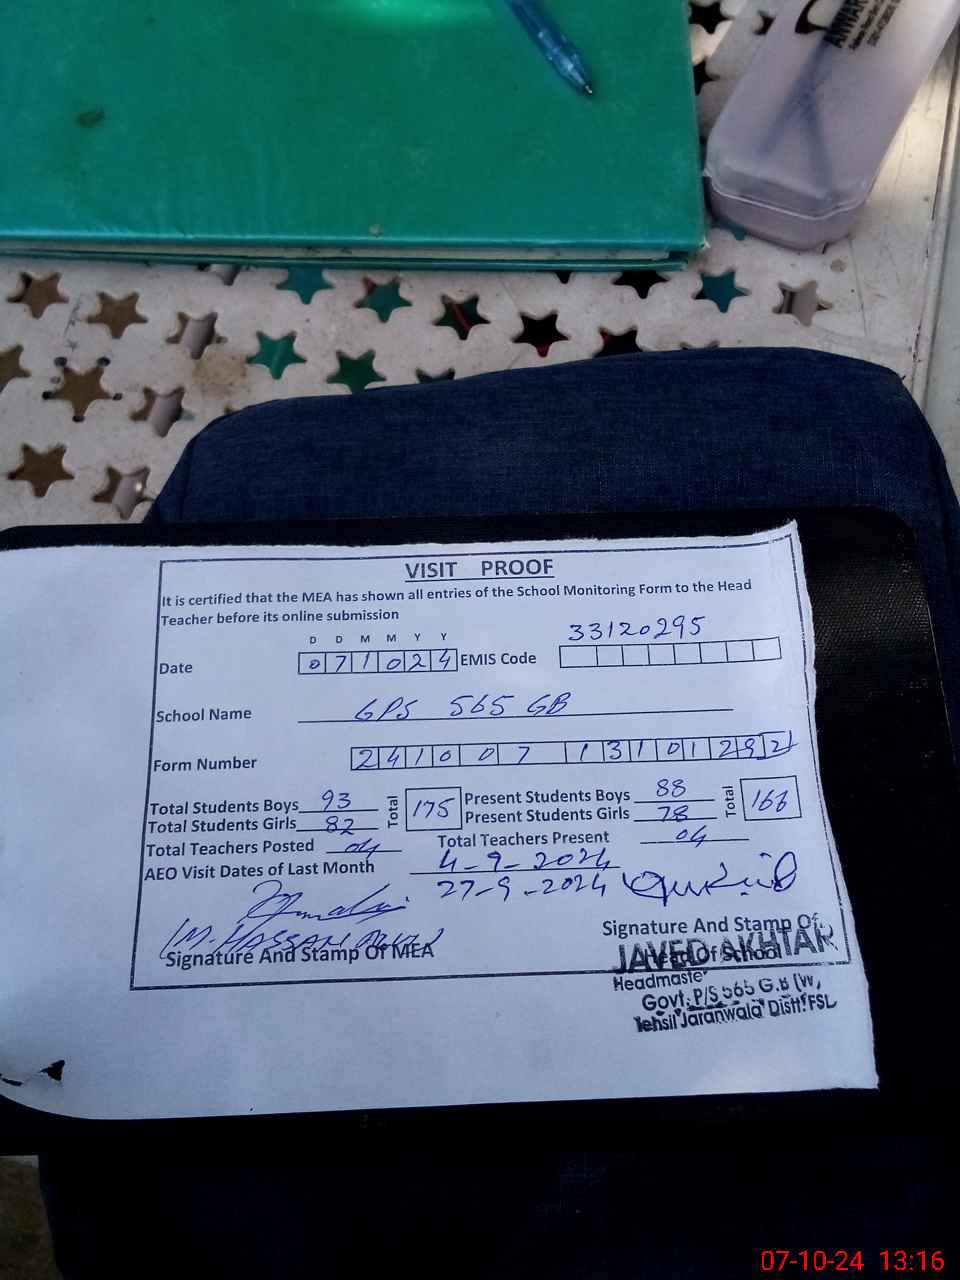 ANWAR
VISIT PROOF
It is certified that the MEA has shown all entries of the School Monitoring Form to the Head
Teacher before its online submission
D D M M Y Y
33120295
Date 0 7 1 0 2 4 EMIS Code
School Name GPS 565 GB
Form Number 2 4 1 0 0 7 1 3 1 0 1 2 9 2
Total Students Boys 93 Total 175 Present Students Boys 88 Total 166
Total Students Girls 82 Present Students Girls 78
Total Teachers Posted 04 Total Teachers Present 04
AEO Visit Dates of Last Month 4-9-2024
27-9-2024
(M. HASSAN
Signature And Stamp Of MEA
Signature And Stamp Of
Head Of School
JAVED AKHTAR
Headmaster
Govt. P/S 565 G.B (W,
Tehsil Jaranwala Distt: FSL
07-10-24 13:16